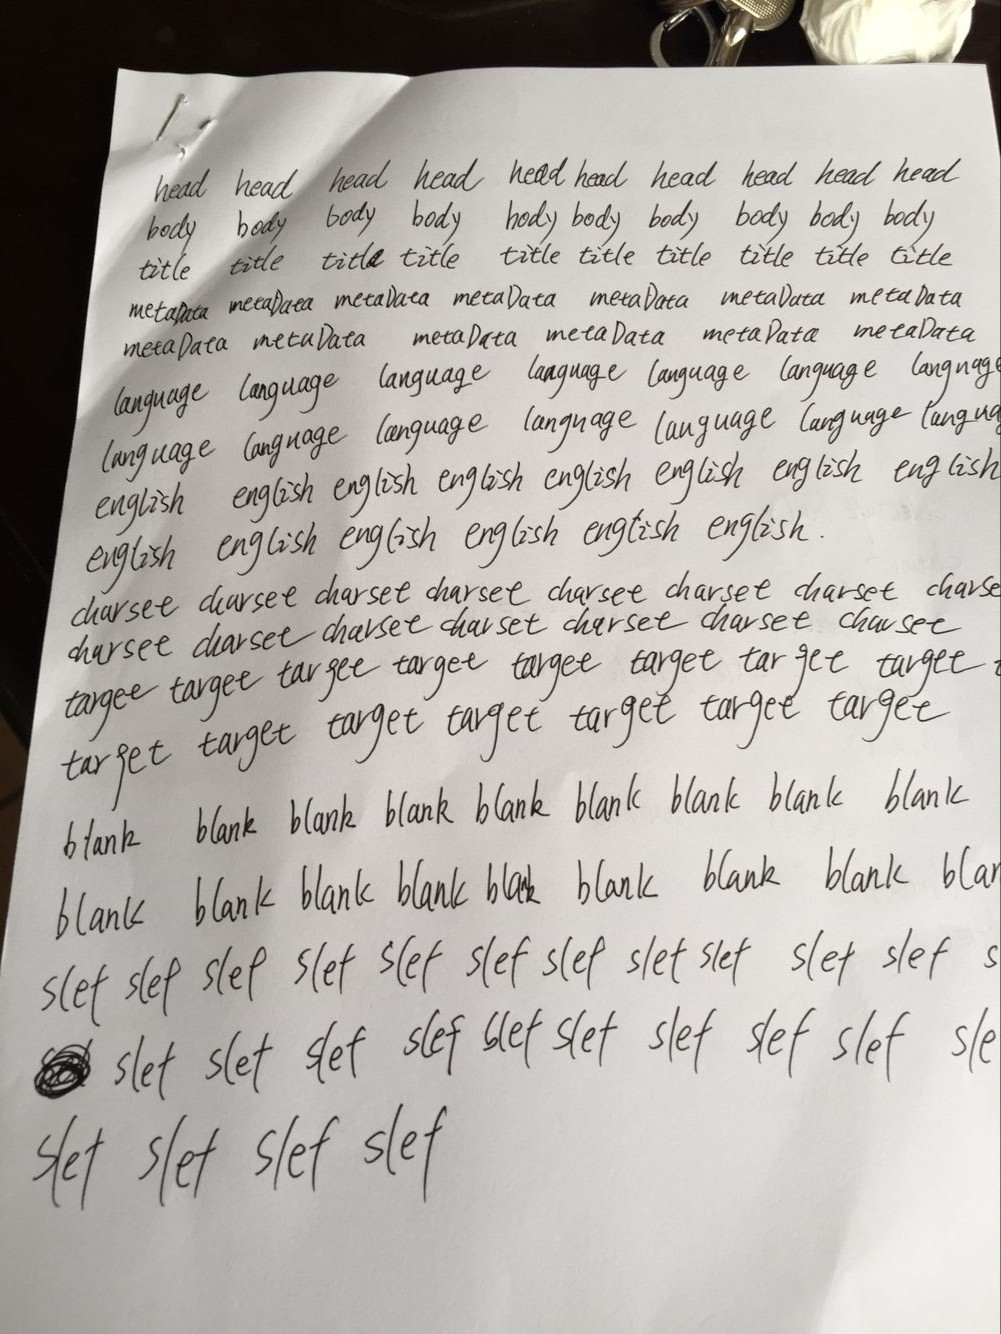 head head head head head head head head head head
body body body body body body body body body body
title title title title title title title title title title
metaData metaData metaData metaData metaData metaData metaData
metaData metaData metaData metaData metaData metaData
language language language language language language language
language language language language language language langua
english english english english english english english english
english english english english english english.
charset charset charset charset charset charset charset charse
charset charset charset charset charset charset charset
target target target target target target target target t
target target target target target target target
blank blank blank blank blank blank blank blank blank
blank blank blank blank blank blank blank blank blan
slef slef slef slef slef slef slef slef slef slef slef s
slef slef slef slef slef slef slef slef slef sle
slef slef slef slef